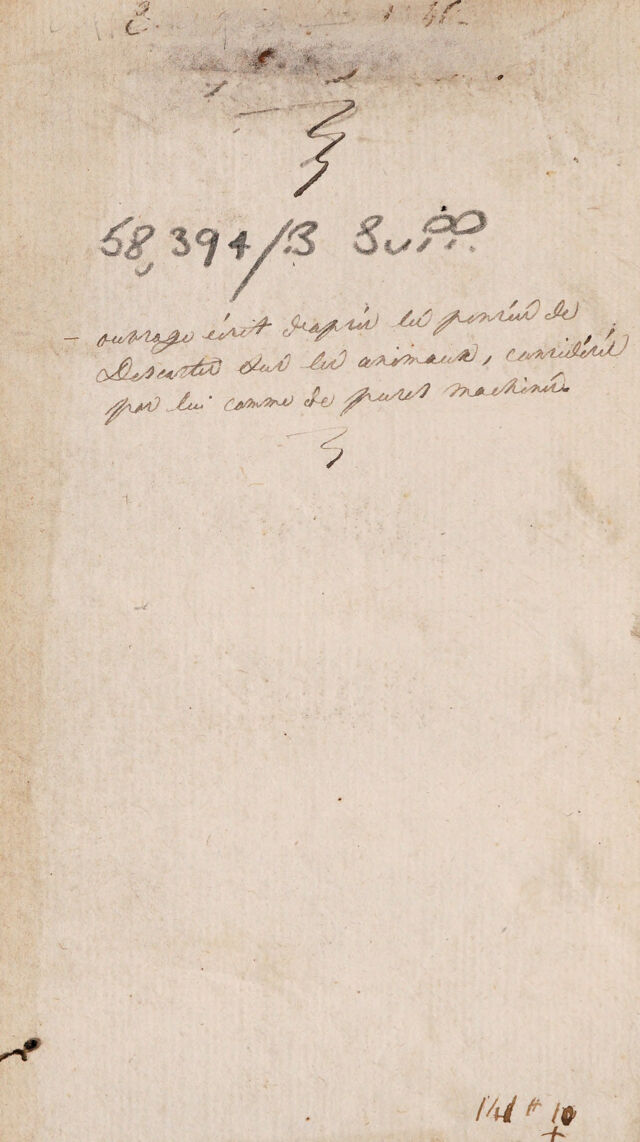 58,394/B Supp.
– ouvrage écrit d'après les pensées de
Descartes sur les animaux, considérés
par lui comme de pures machines.
141 # 10